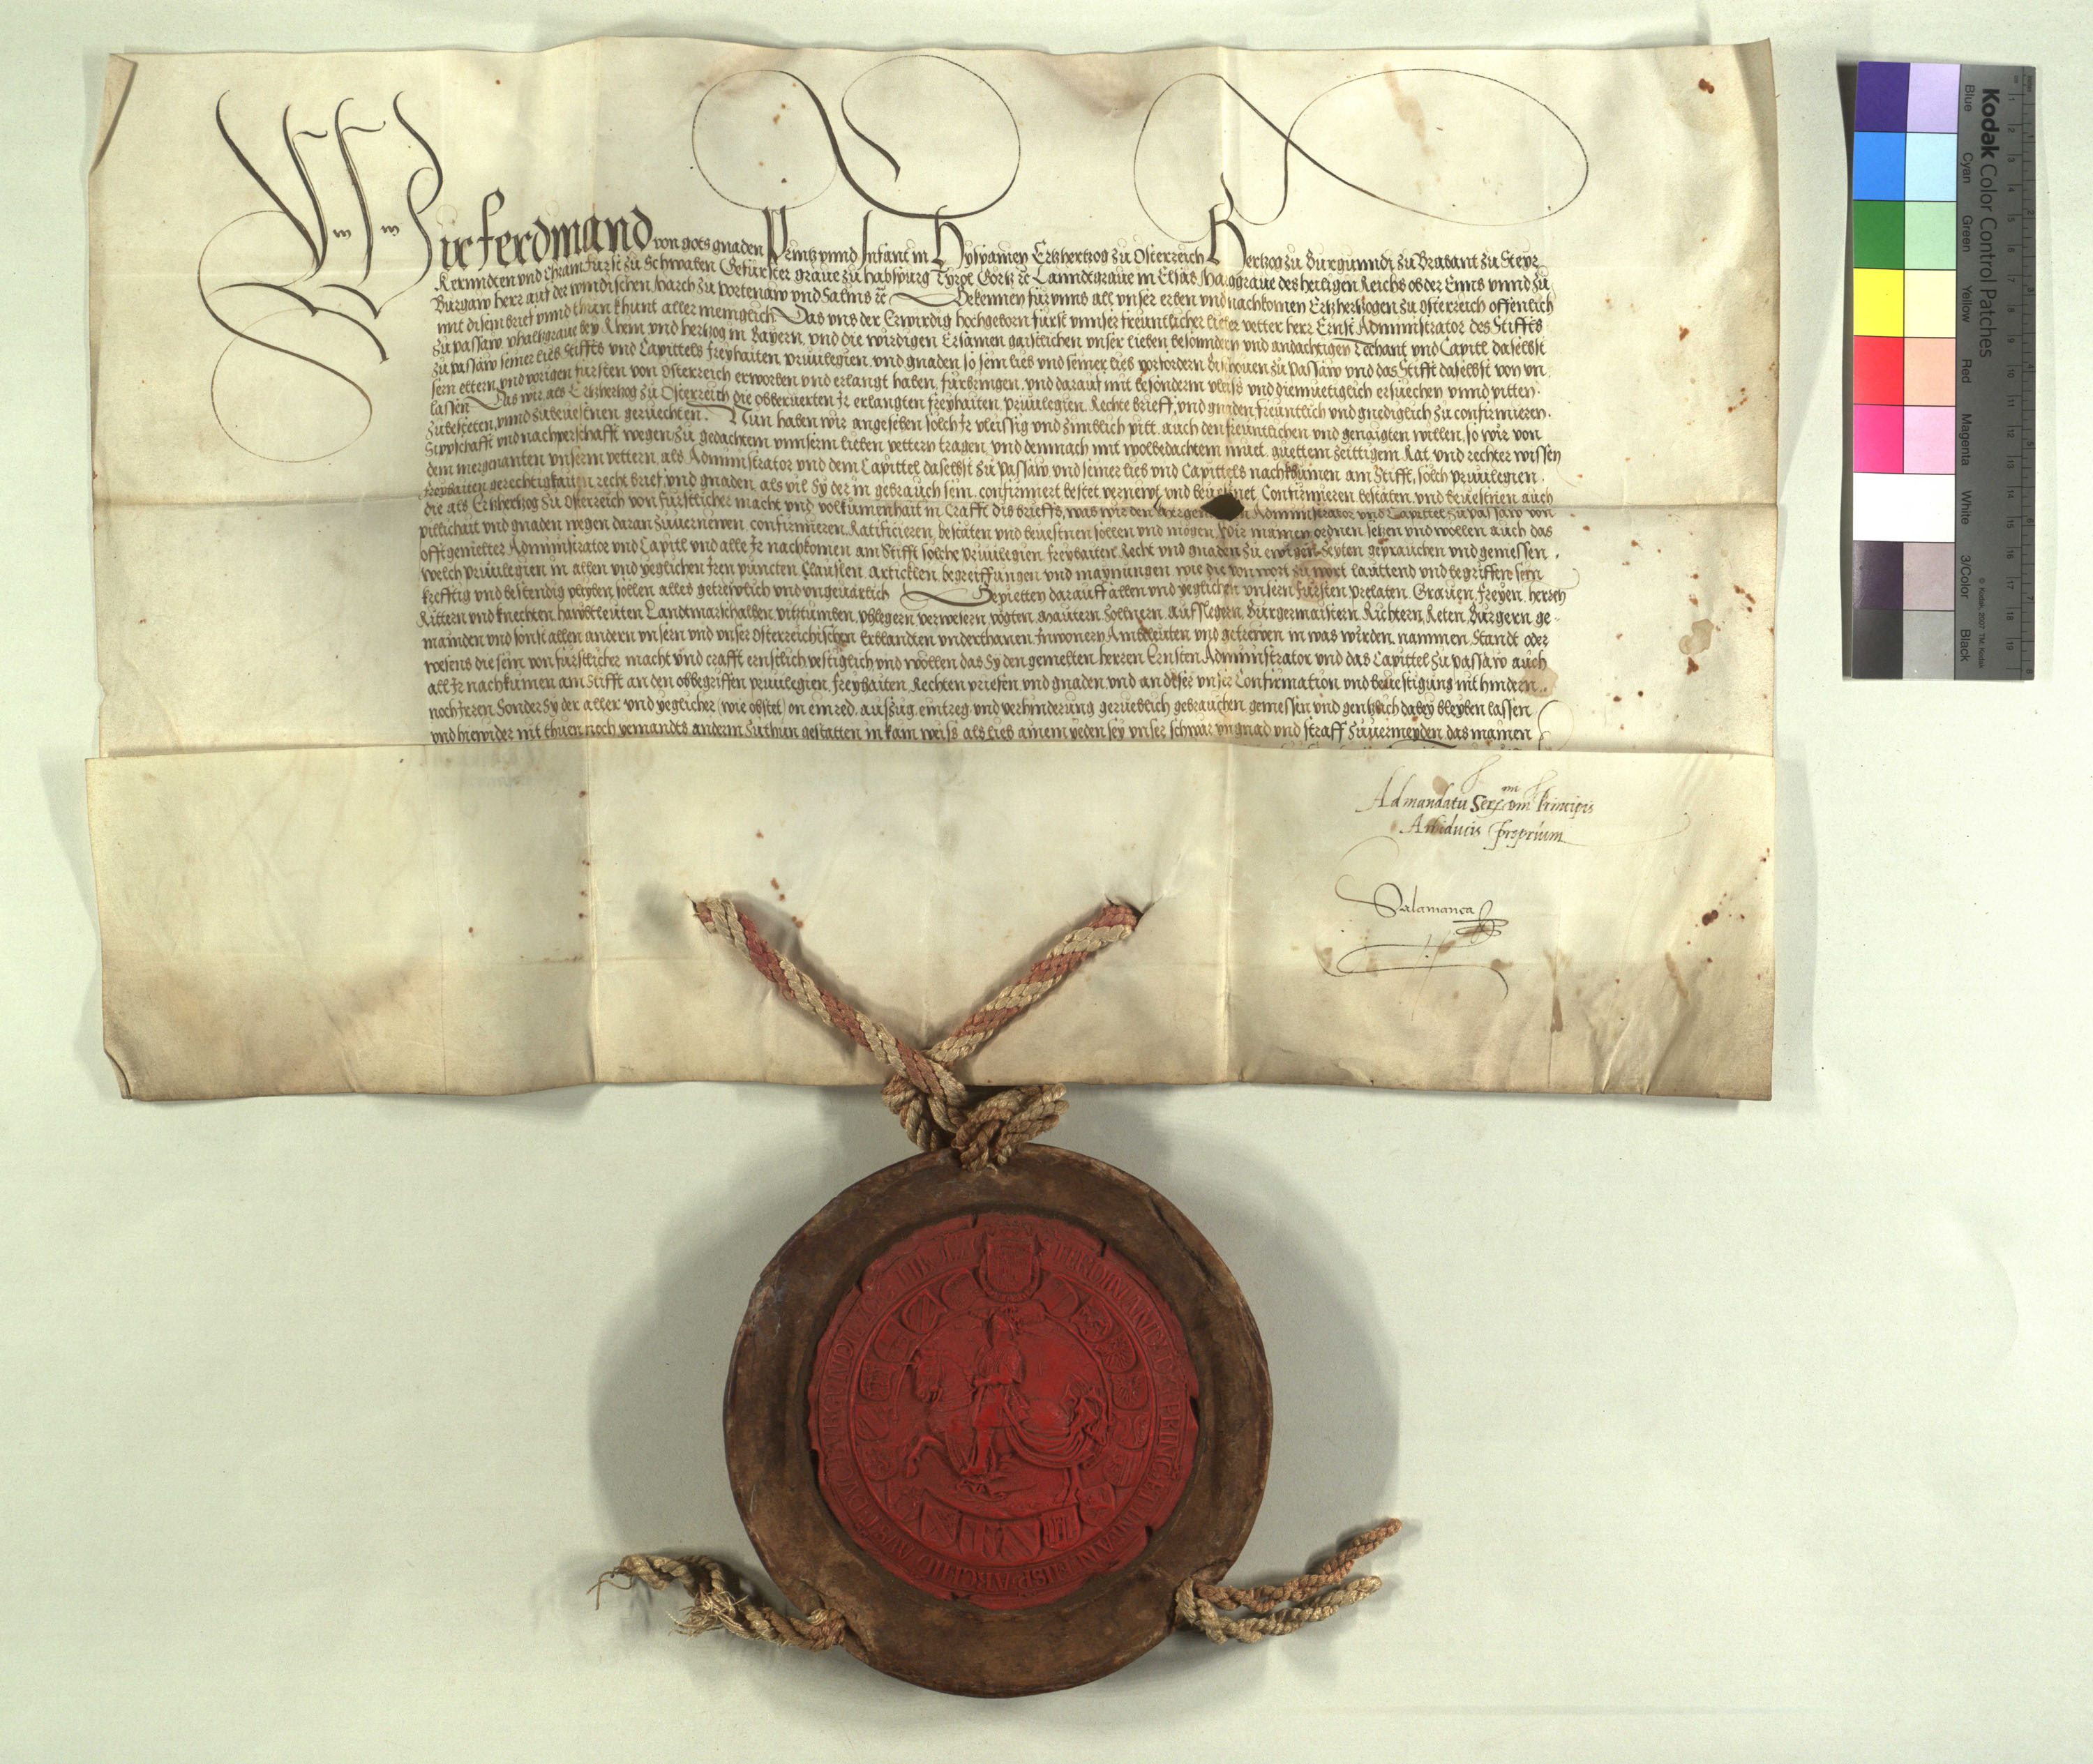 Wir Ferdinand von gots gnaden Printz vnnd Infant in Hyspanien Ertzhertzog zu Osterreich Hertzog zu Burgunndi zu Brabant zu Steyr
Kernndten vnd Chrain Furst zu Schwaben Gefurster graue zu Habspurg Tyrol Gortz ⁊c Lanndtgraue in Elsas Marggraue des heiligen Reichs ob der Enns vnnd zu
Burgaw herr auf der windischen March zu Portenaw vnd Salins ⁊c Bekennen fur vnns all vnser erben vnd nachkomen Ertzhertzogen zu Osterreich offentlich
mit disem brief vnnd thuen khunt aller menigclich Das vns der Erwirdig hochgeborn furst vnnser freuntlicher lieber vetter herr Ernst Administrator des Stiffts
zu passaw phaltzgraue bey Rhein vnd hertzog in Bayern, vnd die wirdigen Ersamen gaistlichen vnser lieben besonndern vnd andachtigen Techant vnd Capitl daselbst
zu passaw seiner lieb Stiffts vnd Capittels freyhaiten priuilegien, vnd gnaden so sein lieb vnd seiner lieb vorfordern Bischouen zu Passaw vnd das Stifft daselbst von vn
sern eltern vnd vorigen fursten von Osterreich erworben vnd erlangt haben, furbringen, vnd darauf mit besonderm vleiss vnd diemuetigclich ersuechen vnnd pitten
lassen Das wir als Ertzhertzog zu Osterreich die obberuerten Ir erlangten freyhaiten, priuilegien, Rechte brieff, vnd gnaden, freuntlich vnd gnedigclich zu confirmieren.
zubesteten, vnnd zubeuestnen geruechten. Nun haben wir angesehen solch Ir vleissig vnd zimblich pitt, auch den freuntlichen vnd genaigten willen, so wir von
Sippschafft vnd nachperschafft wegen, zu gedachtem vnnserm lieben vettern tragen, vnd demnach mit wolbedachtem muet, guettem zeittigem Rat, vnd rechter wissen
dem mergenanten vnserm vettern, als Administrator vnd dem Capittel daselbst zu Passaw vnd seiner lieb vnd Capittels nachkumen am Stifft, solch priuilegien,
freyhaiten gerechtigkaiten recht brief, vnd gnaden, als vil Sy der in gebrauch sein, confirmiert bestet, vernewt, vnd beuestnet, Confirmieren bestaten, vnd beuestnen auch
die als Ertzhertzog zu Osterreich von furstlicher macht vnd volkumenhait in Crafft dis brieffs, was wir den Administrator vnd Capittel zu Passaw von
pillichait vnd gnaden wegen daran zuuernewen, confirmieren, Ratificieren, bestaten vnd beuestnen sollen vnd mogen, Wir mainen ordnen setzen vnd wollen auch das
offtgemelter Administrator vnd Capitl vnd alle Ir nachkomen am Stifft solche priuilegien, freyhaiten, Recht vnd gnaden zu ewigen Zeyten geprauchen vnd geniessen,
welch priuilegien in allen vnd yeglichen Iren puncten, Clauslen, articklen, begreiffungen vnd maynungen, wie die von wort zu wort lauttend vnd begriffen sein
krefftig vnd bestendig pleyben, sollen alles getrewlich vnd vngeuärlich Gepietten darauff allen vnd yeglichen vnsern fursten prelaten, Grauen, freyen, herren
Rittern vnd knechten, haubtleuten Landtmarschalhen, vitztumben, phlegern verwesern, vogten, mautern, Zollnern, aufslegern, Burgermaistern, Richtern, Reten, Burgern ge-
mainden vnd sonst allen andern vnsern vnd vnser Osterreichischen Erblandten vnderthanen Inwonern Ambtleuten vnd getrewen in was wirden, nammen, Standt oder
wesens die sein, von furstlicher macht vnd crafft ernstlich vestigclich vnd wollen, das Sy den gemelten herren Ernsten Administrator vnd das Capittel zu Passaw auch
all Ir nachkumen am Stifft an den obbegriffen priuilegien, freyhaiten, Rechten, priefen, vnd gnaden, vnd an diser vnser Confirmation vnd beuestigung nit hindern,
noch Irren, Sonder Sy der aller vnd yeglicher (wie obstet) on einred, aufzug, eintreg, vnd verhinderung geruelich gebrauchen geniessen vnd gentzlich dabey bleyben lassen
vnd hiewider nit thuen, noch yemandts anderm zuthun gestatten in kain weiss, als lieb ainem yeden sey vnser schwär vngnad vnd straff zuuermeyden, das mainen
Ad mandatu Sermi dm Principis
Archiducis proprium
Salamanca
FERDINAND
PRINC ET INFAN HISP ARCHID AVST DVX BVRGVNDI
Kodak Color Control Patches
© Kodak, 2007 TM: Kodak
Blue Cyan Green Yellow Red Magenta White 3/Color Black
1 2 3 4 5 6 7 8 9 10 11 12 13 14 15 16 17 18 19